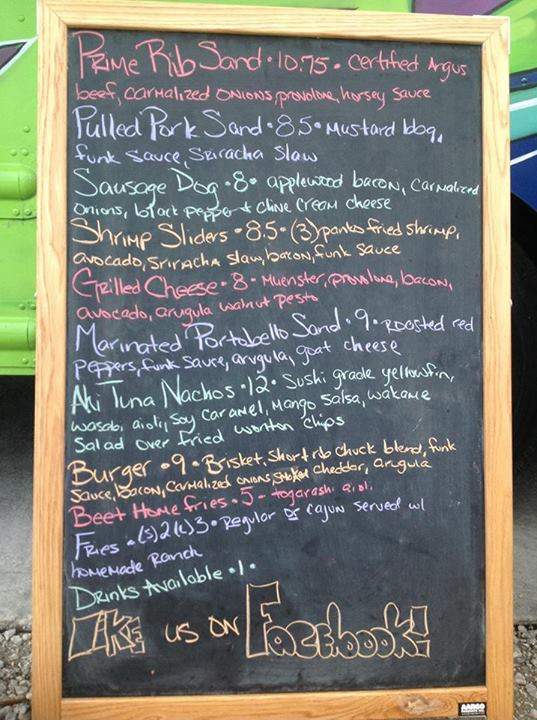 Prime Rib Sand • 10.75 • certified Angus
beef, carmalized onions, provolone, horsey sauce
Pulled Pork Sand • 8.5 • Mustard bbq,
funk sauce, Sriracha Slaw
Sausage Dog • 8 • applewood bacon, carmalized
onions, black pepper & chive cream cheese
Shrimp Sliders • 8.5 • (3) panko fried shrimp,
avocado, Sriracha slaw, bacon, funk sauce
Grilled Cheese • 8 • Muenster, provolone, bacon,
avocado, arugula walnut pesto
Marinated Portobello Sand • 9 • roasted red
peppers, funk sauce, arugula, goat cheese
Ahi Tuna Nachos • 12 • Sushi grade yellowfin,
wasabi aioli, soy caramel, Mango Salsa, wakame
Salad over fried wonton chips
Burger • 9 • Brisket, Short rib chuck blend, funk
sauce, bacon, carmalized onions, smoked cheddar, arugula
Beet Home fries • 5 - togarashi aioli
Fries • (s)2 (L)3 • Regular or cajun served w/
homemade Ranch
Drinks Available • 1 •
Like us on Facebook!
AARCO